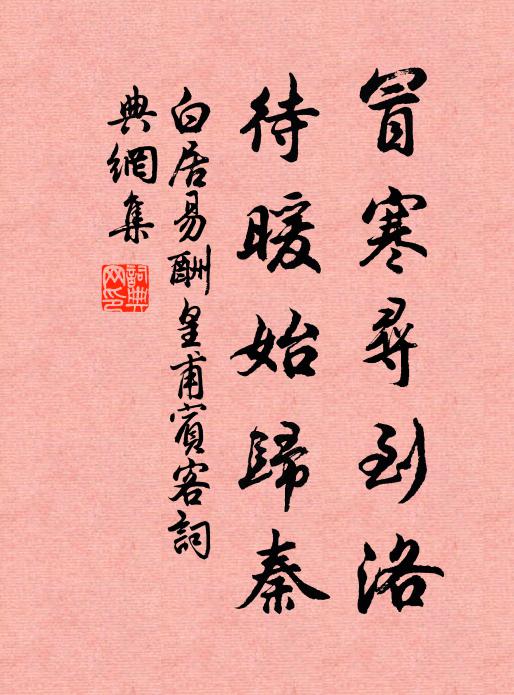 冒寒尋到洛
待暖始歸秦
白居易酬皇甫賓客詞
典網集
詞典
网印